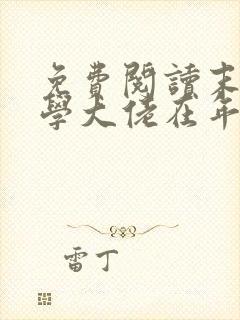 免費閱讀末
學大佬在年
雷丁